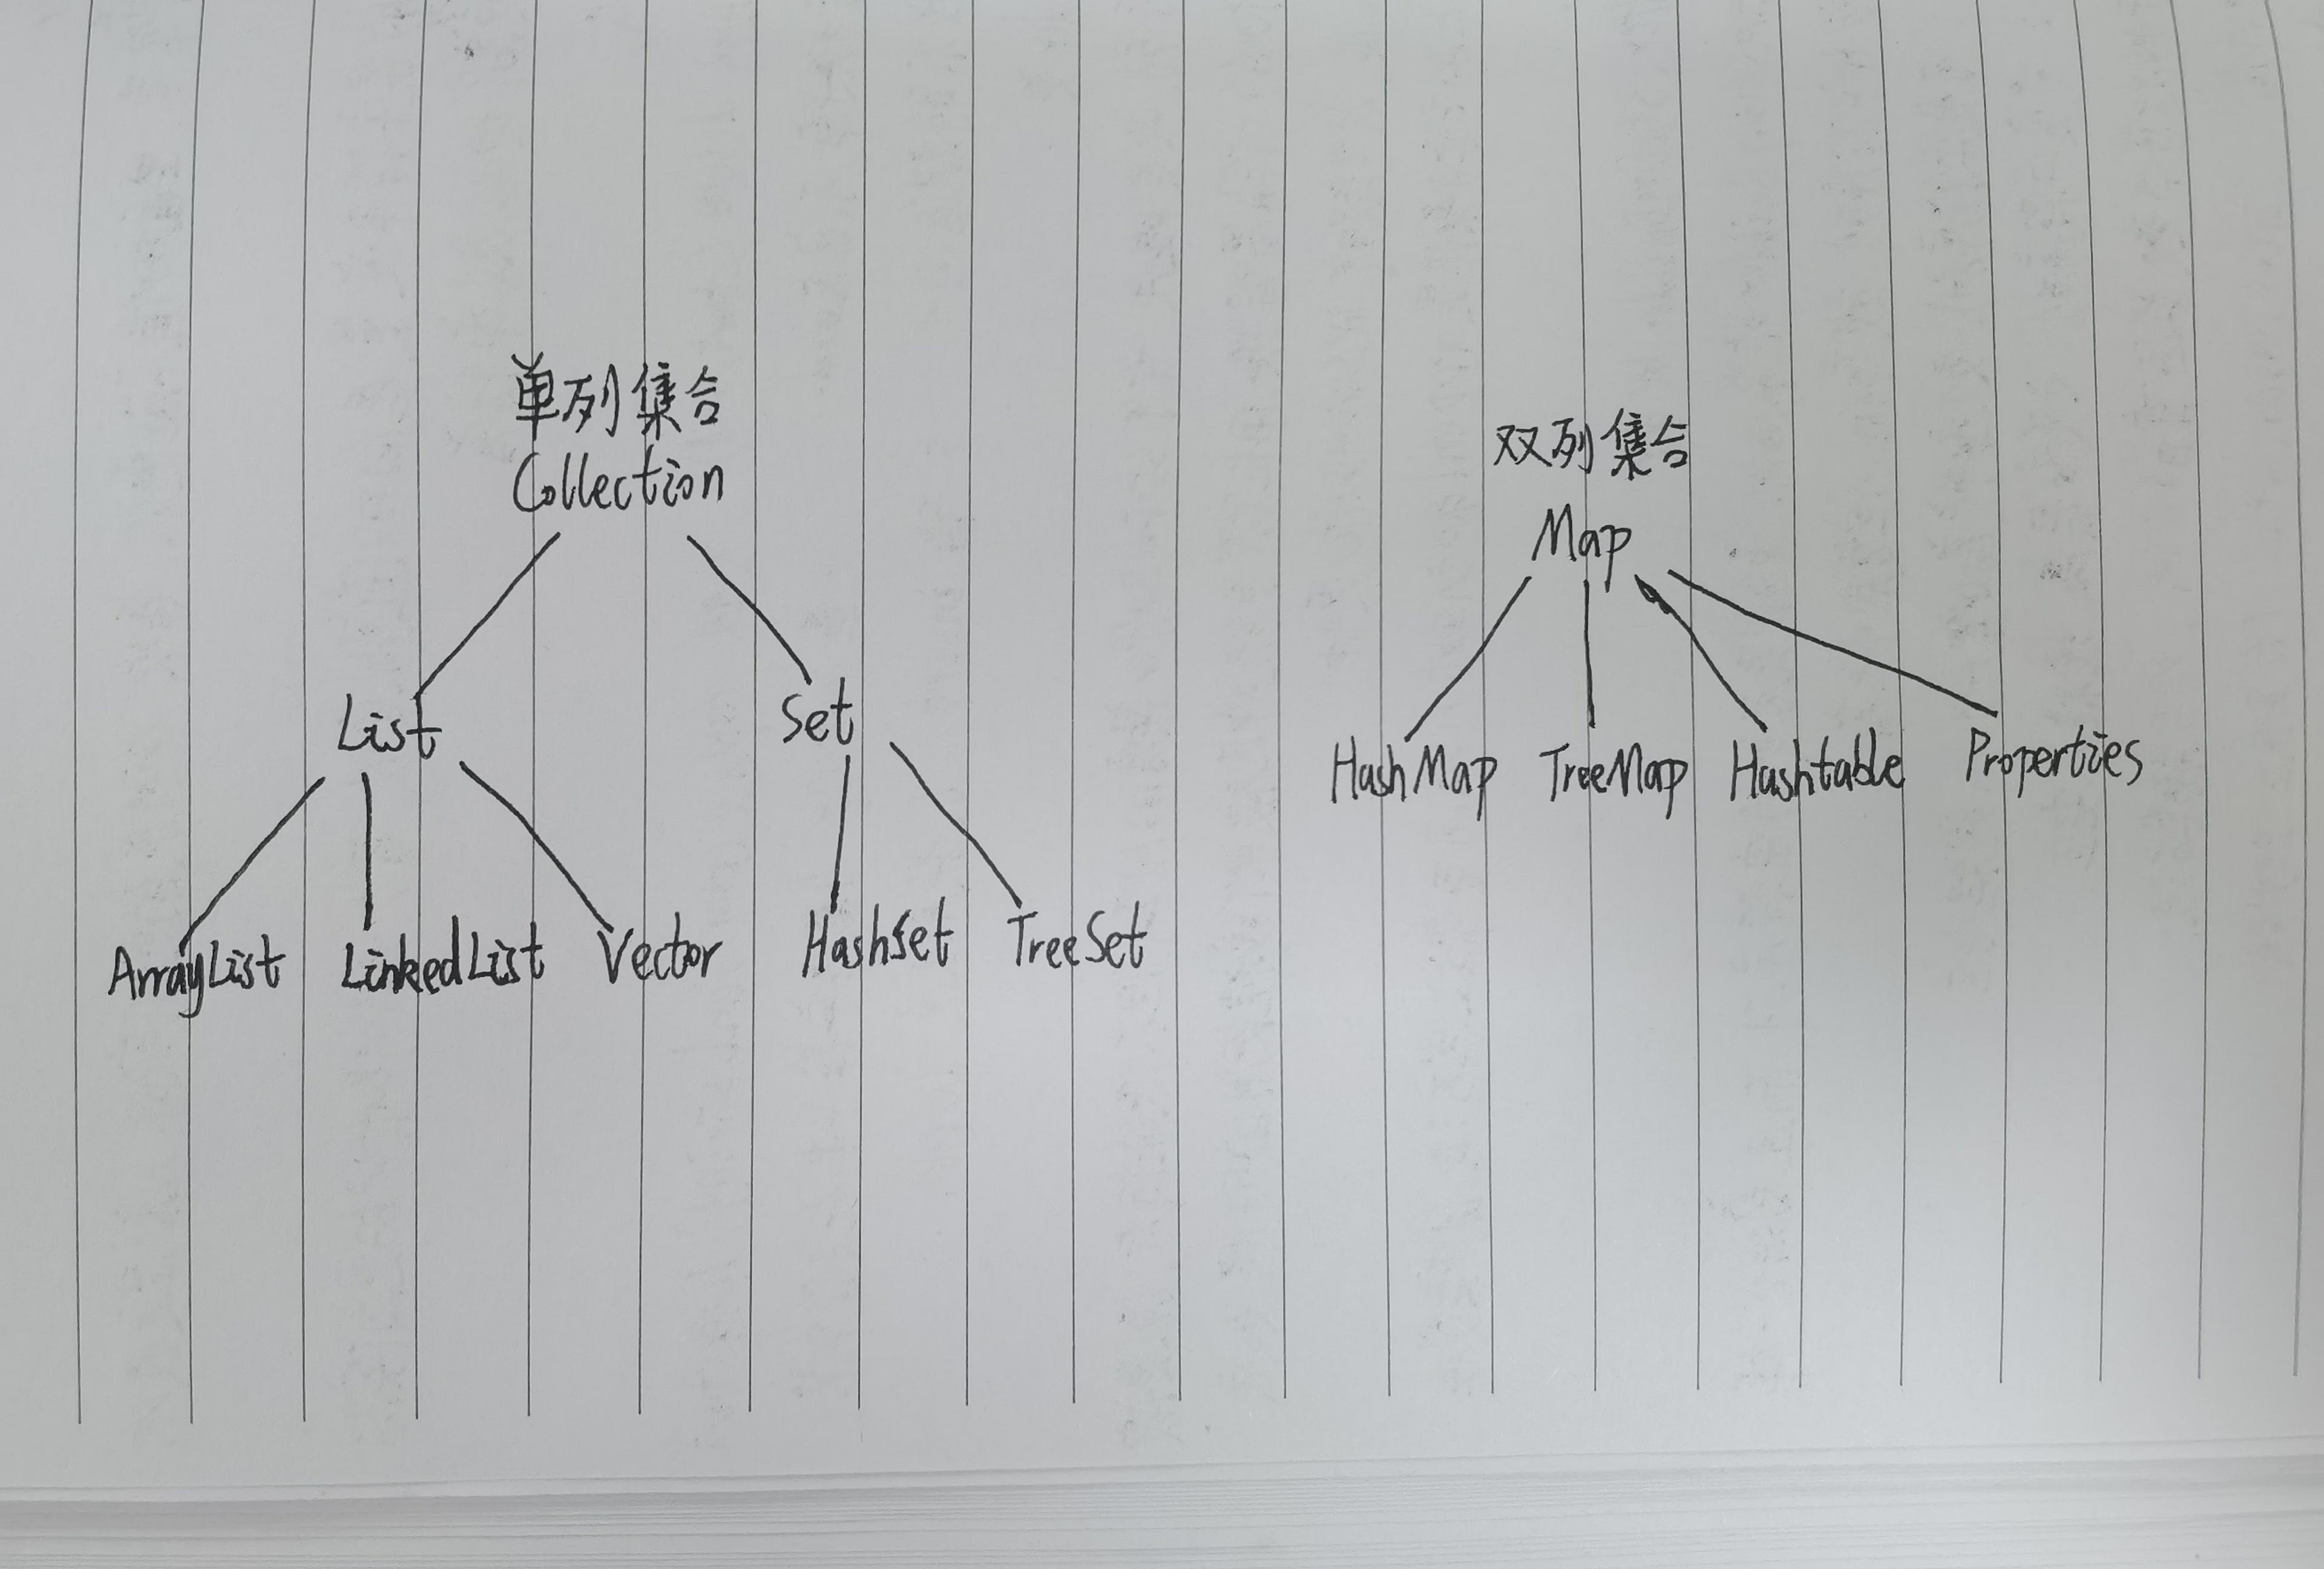 单列集合
Collection
List
Set
ArrayList
LinkedList
Vector
HashSet
TreeSet
双列集合
Map
HashMap
TreeMap
Hashtable
Properties